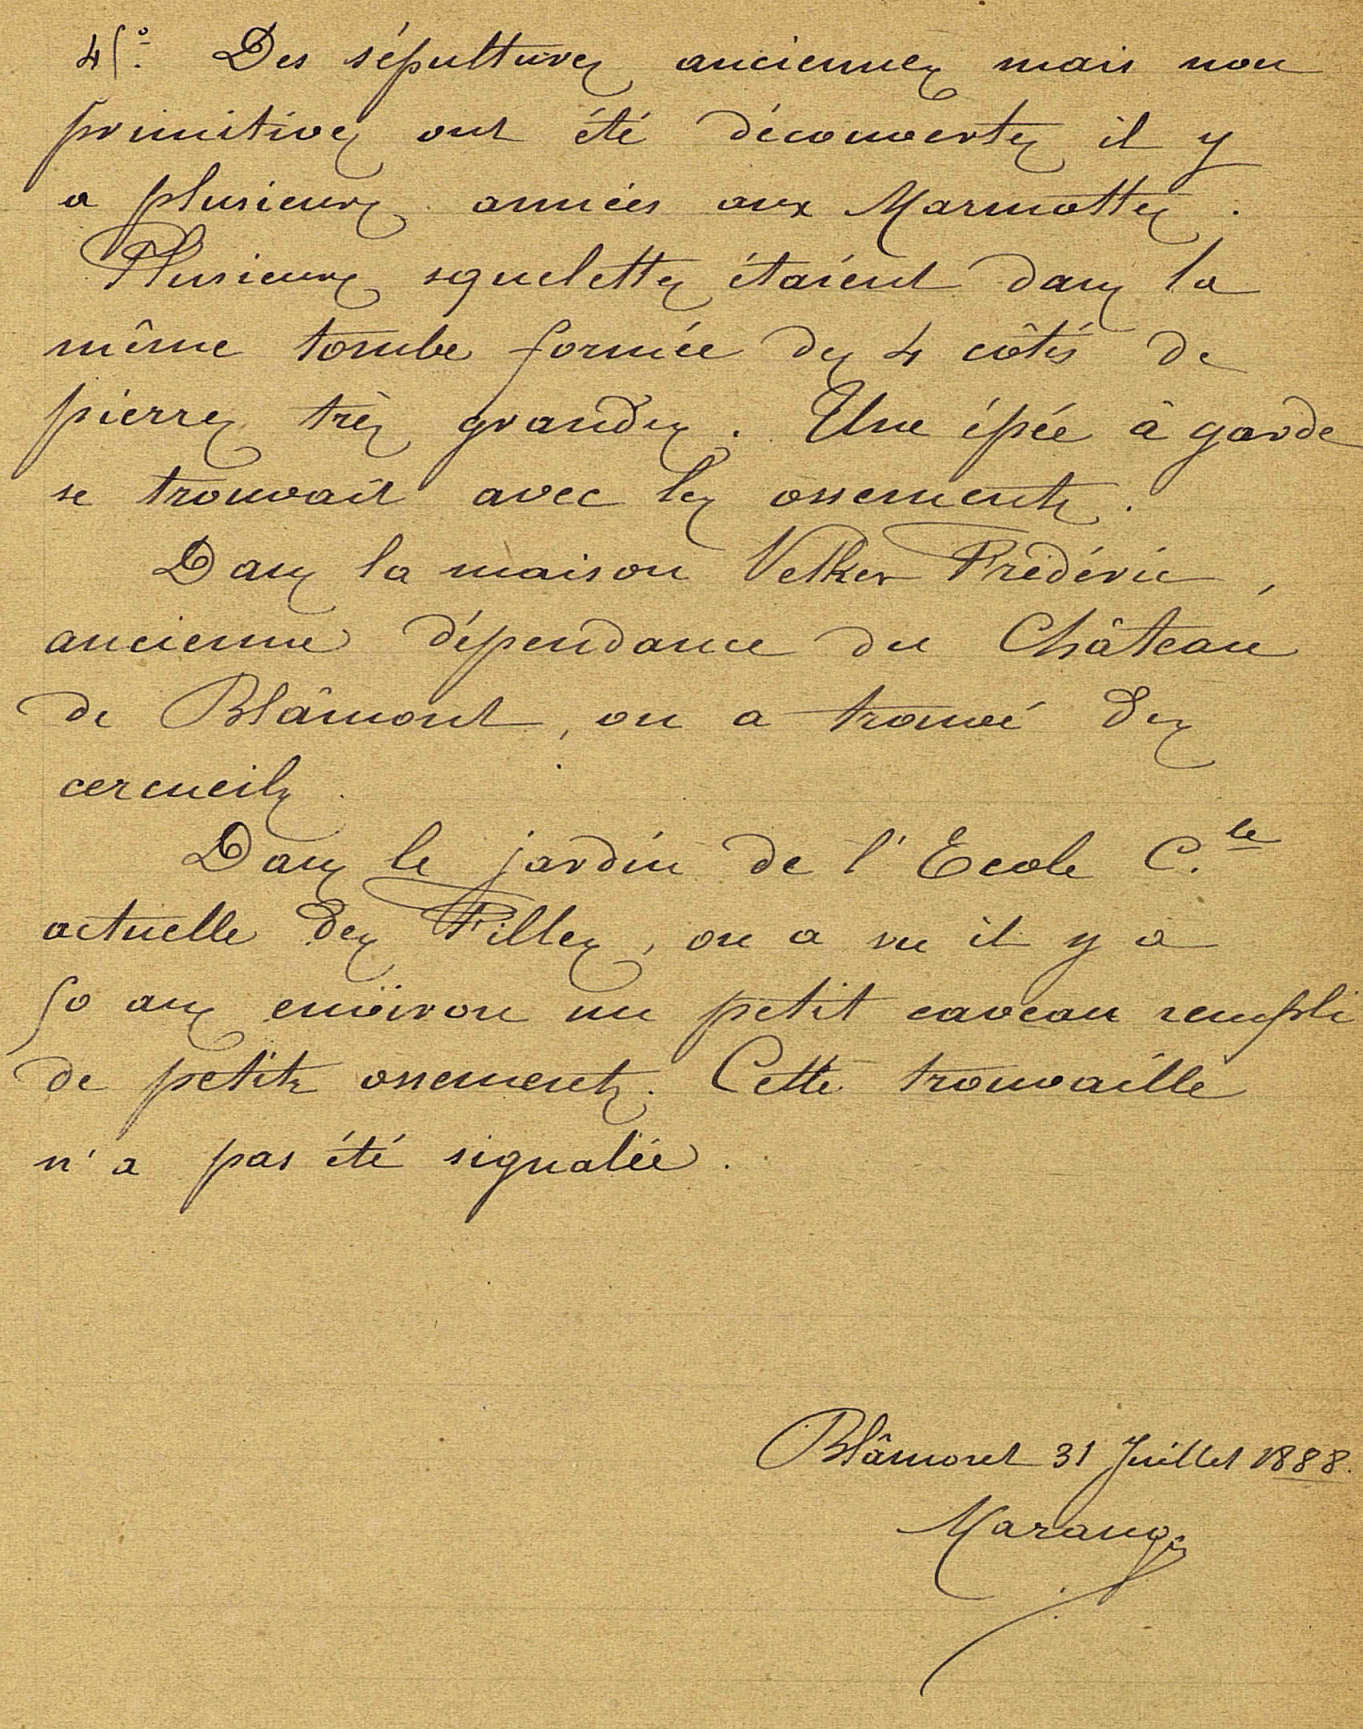 45º. Des sépultures anciennes mais non
primitives ont été découvertes il y
a plusieurs années aux Marmottes.
Plusieurs squelettes étaient dans la
même tombe formée des 4 côtés de
pierres très grandes. Une épée à garde
se trouvait avec les ossements.
Dans la maison Vetker Frédéric,
ancienne dépendance du Château
de Blâmont, on a trouvé des
cercueils.
Dans le jardin de l'Ecole C.le
actuelle des Filles, on a vu il y a
50 ans environ un petit caveau rempli
de petits ossements. Cette trouvaille
n'a pas été signalée.
Blâmont 31 Juillet 1888.